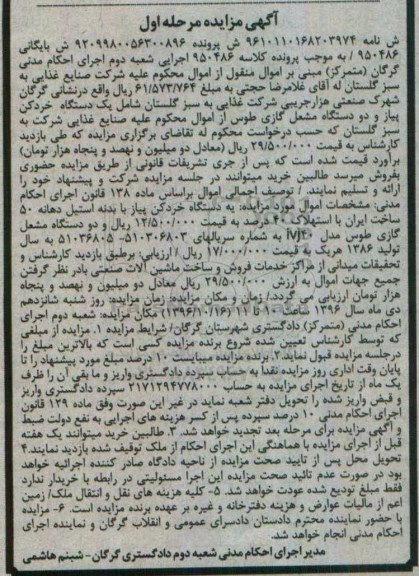 آگهی مزایده مرحله اول
ش نامه ۹۶۱۰۱۱۰۱۶۸۲۰۳۹۷۴ ش پرونده ۹۲۰۹۹۸۰۰۵۶۳۰۰۸۹۶ ش بایگانی
۹۵۰۴۸۶ / به موجب پرونده کلاسه ۹۵۰۴۸۶ اجرایی شعبه دوم اجرای احکام مدنی
گرگان (متمرکز) مبنی بر اموال منقول از اموال محکوم علیه شرکت صنایع غذایی به
سبز گلستان له آقای غلامرضا حجتی به مبلغ ۶۱/۵۷۳/۷۶۴ ریال واقع درنشانی گرگان
شهرک صنعتی هزارجریبی شرکت غذایی به سبز گلستان شامل یک دستگاه خردکن
پیاز و دو دستگاه مشعل گازی طوس از اموال محکوم علیه صنایع غذایی شرکت به
سبز گلستان که حسب درخواست محکوم له تقاضای برگزاری مزایده که طی بازدید
کارشناس به قیمت ۲۹/۵۰۰/۰۰۰ ریال (معادل دو میلیون و نهصد و پنجاه هزار تومان)
برآورد قیمت شده است که پس از جری تشریفات قانونی از طریق مزایده حضوری
بفروش میرسد طالبین خرید میتوانند در جلسه مزایده شرکت و پیشنهاد خود را
ارائه و تسلیم نمایند. / توصیف اجمالی اموال براساس ماده ۱۳۸ قانون اجرای احکام
مدنی: مشخصات اموال مورد مزایده: یه دستگاه خردکن پیاز با بدنه استیل دهانه ۵۰
ساخت ایران با استهلاک ۴۰ درصد به قیمت ۱۲/۵۰۰/۰۰۰ ریال و دو دستگاه مشعل
گازی طوس مدل lvj۴۰ به شماره سریالهای ۵۱۰۳۰۶۸۰۳- ۵۱۰۳۶۸۰۵ به سال
تولید ۱۳۸۶ هریک به قیمت ۱۷/۰۰۰/۰۰۰ ریال / ارزیابی: برطبق بازدید کارشناس و
تحقیقات میدانی از مراکز خدمات فروش و ساخت ماشین آلات صنعتی بادر نظر گرفتن
جمیع جهات اموال به ارزش ۲۹/۵۰۰/۰۰۰ ریال معادل دو میلیون و نهصد و پنجاه
هزار تومان ارزیابی می گردد./ زمان و مکان مزایده: زمان مزایده: روز شنبه شانزدهم
دی ماه سال ۱۳۹۶ ساعت ۱۰ تا ۱۱ (۱۳۹۶/۱۰/۱۶) مکان مزایده: شعبه دوم اجرای
احکام مدنی (متمرکز) دادگستری شهرستان گرگان/ شرایط مزایده ۱. مزایده از مبلغی
که توسط کارشناس تعیین شده شروع برنده مزایده کسی است که بالاترین مبلغ را
درجلسه مزایده قبول نماید.۲. برنده مزایده میبایست ۱۰ درصد مبلغ مورد پیشنهاد را تا
پایان وقت اداری روز مزایده نقدا به حساب سپرده دادگستری واریز و ما بقی آن را ظرف
یک ماه از تاریخ اجرای مزایده به حساب ۲۱۷۱۲۹۴۷۷۸۰۰۰ سپرده دادگستری واریز
و قبض واریز شده را تحویل دفتر شعبه نماید در غیر این صورت وفق ماده ۱۲۹ قانون
اجرای احکام مدنی ۱۰ درصد سپرده پس از کسر هزینه های اجرایی به نفع دولت ضبط
و آگهی مزایده برای مرحله بعد تجدید خواهد شد. ۳. طالبین خرید میتوانند یک هفته
قبل از اجرای مزایده با هماهنگی این اجرای احکام از ملک توقیف شده بازدید نمایند.۴
تحویل محل پس از تایید صحت مزایده از ناحیه دادگاه صادر کننده اجرائیه خواهد
بود در صورت عدم تائید صحت مزایده این اجرا مسئولیتی در رابطه با خریدار ندارد
فقط مبلغ تودیع شده عودت خواهد شد. ۵- کلیه هزینه های نقل و انتقال ملک/ زمین
اعم از مالیات عوارض و هزینه دفترخانه و غیره بر عهده برنده مزایده است. ۶- مزایده
با حضور نماینده محترم دادستان دادسرای عمومی و انقلاب گرگان و نماینده اجرای
احکام مدنی انجام خواهد شد.
مدیر اجرای احکام مدنی شعبه دوم دادگستری گرگان- شبنم هاشمی